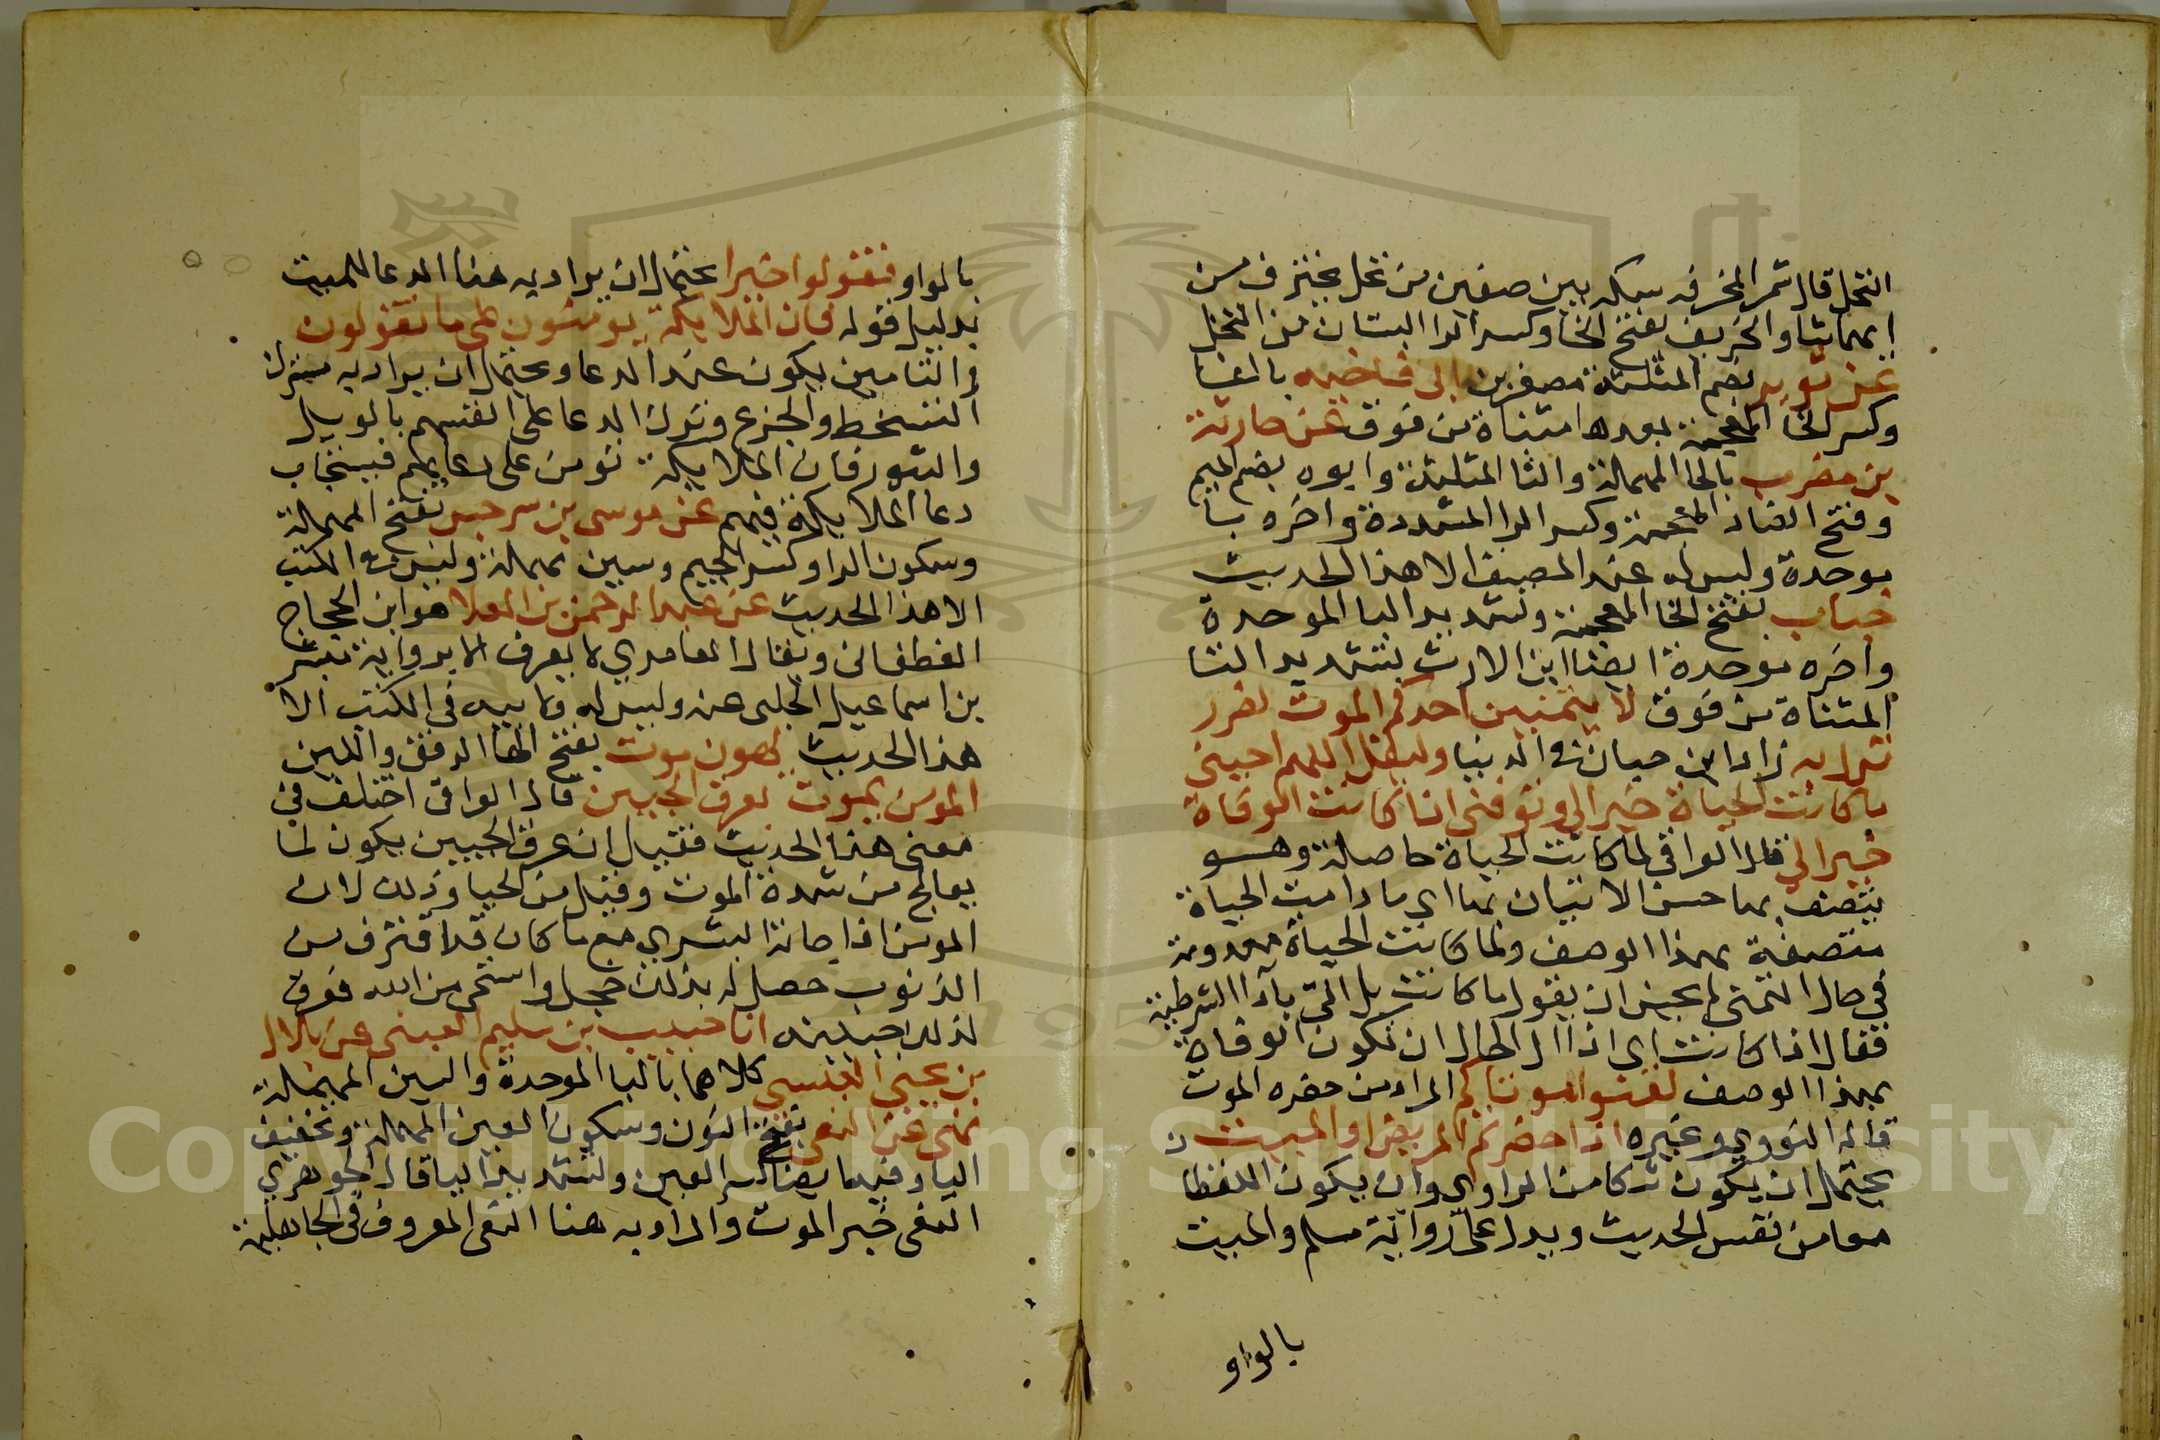 النخل قال شمر المخرفه سكه بين صفين من نخل يخترف من
ايهما شا والخريف بفتح الخا وكسر الرا البستان من النخل
عن ثوير بضم المثلثة مصغر بن ابى فاخته بالفا
وكسر الخا المعجمة بعدها مثناة من فوق عن حارثة
بن مضرب بالحا المهملة والثا المثلثة وابوه بضم الميم
وفتح الضاد المعجمة وكسر الرا المشددة واخره با
موحدة وليس له عند المصنف الا هذا الحديث
خباب بفتح الخا المعجمة وتشديد البا الموحدة
واخره موحدة ايضا ابن الارت بتشديد التا
المثناة من فوق لا يتمنين احدكم الموت لضر
نزل به زاد ابن حبان فى الدنيا وليقل اللهم احينى
ما كانت الحياة خيرا لي وتوفنى اذا كانت الوفاة
خيرا لي قال العراقي لما كانت الحياة حاصلة وهو
يتصف بها حسن الاتيان بما اي ما دامت الحياة
متصفة بهذا الوصف ولما كانت الحياة معدومة
في حال التمني لم يحسن ان يقول ما كانت بل اتى باذا الشرطية
فقال اذا كانت اى اذا ال الحال ان تكون الوفاة
بهذا الوصف لقنوا موتاكم المراد من حضره الموت
قاله النووي وغيره اذا حضرتم المريض او الميت
يحتمل ان يكون شكا من الراوي وان يكون اللفظا
معا من نفس الحديث ويدل على رواية مسلم والميت
بالواو
بالواو فقولوا خيرا يحتمل ان يراد به هنا الدعا للميت
بدليل قوله فان الملايكة يومنون على ما تقولون
والتامين يكون عند الدعا ويحتمل ان يراد به مترك
التسخط والجزع وترك الدعا على انفسهم بالويل
والثبور فان الملايكة تومن على دعايهم فيستجاب
دعا الملايكة فيهم عن موسى بن سرجس بفتح المهملة
وسكون الرا وكسر الجيم وسين مهملة وليس له فى الكتب
الا هذا الحديث عن عبد الرحمن بن العلا هو ابن الحجاج
الغطفانى ويقال العامري لا يعرف الا برواية مبشر
بن اسماعيل الحلبى عنه وليس له ولابيه فى الكتب الا
هذا الحديث بهون موت بفتح الها الرفق واللين
المومن يموت بعرق الجبين قال العراقى اختلف في
معنى هذا الحديث فقيل ان عرق الجبين يكون لما
يعالج من شدة الموت وقيل من الحيا وذلك لان
المومن اذا جانه البشري مع ما كان قد اقترف من
الذنوب حصل له بذلك خجل واستحى من الله فعرق
لذلك جبينه انا حبيب بن سليم العبسى عن بلال
بن يحيى العبسي كلاهما بالبا الموحدة والسين المهملة
نهى عن النعى بفتح النون وسكون العين المهملة وتخفيف
اليا وفيها ايضا كسر العين وتشديد اليا قال الجوهري
النعى خبر الموت والمراد به هنا النعى المعروف فى الجاهلية
Copyright © King Saud University